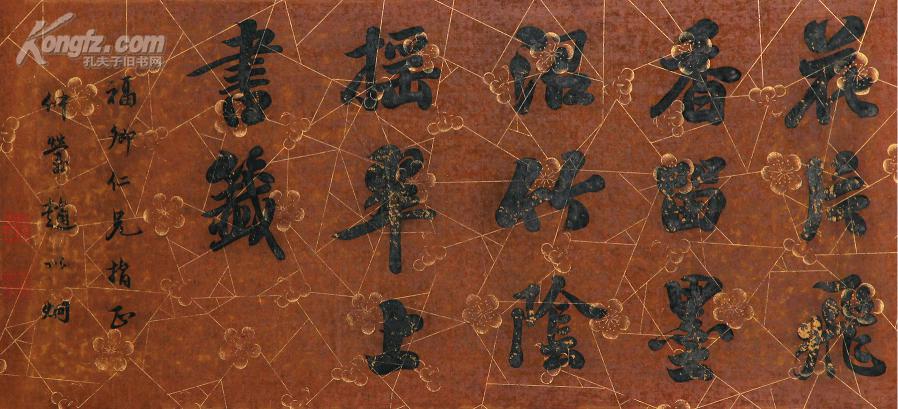 花片飛
香留墨
沼竹陰
搖翠上
書籤
福卿仁兄指正
仲瑩趙以炯
Kongfz.com
孔夫子旧书网